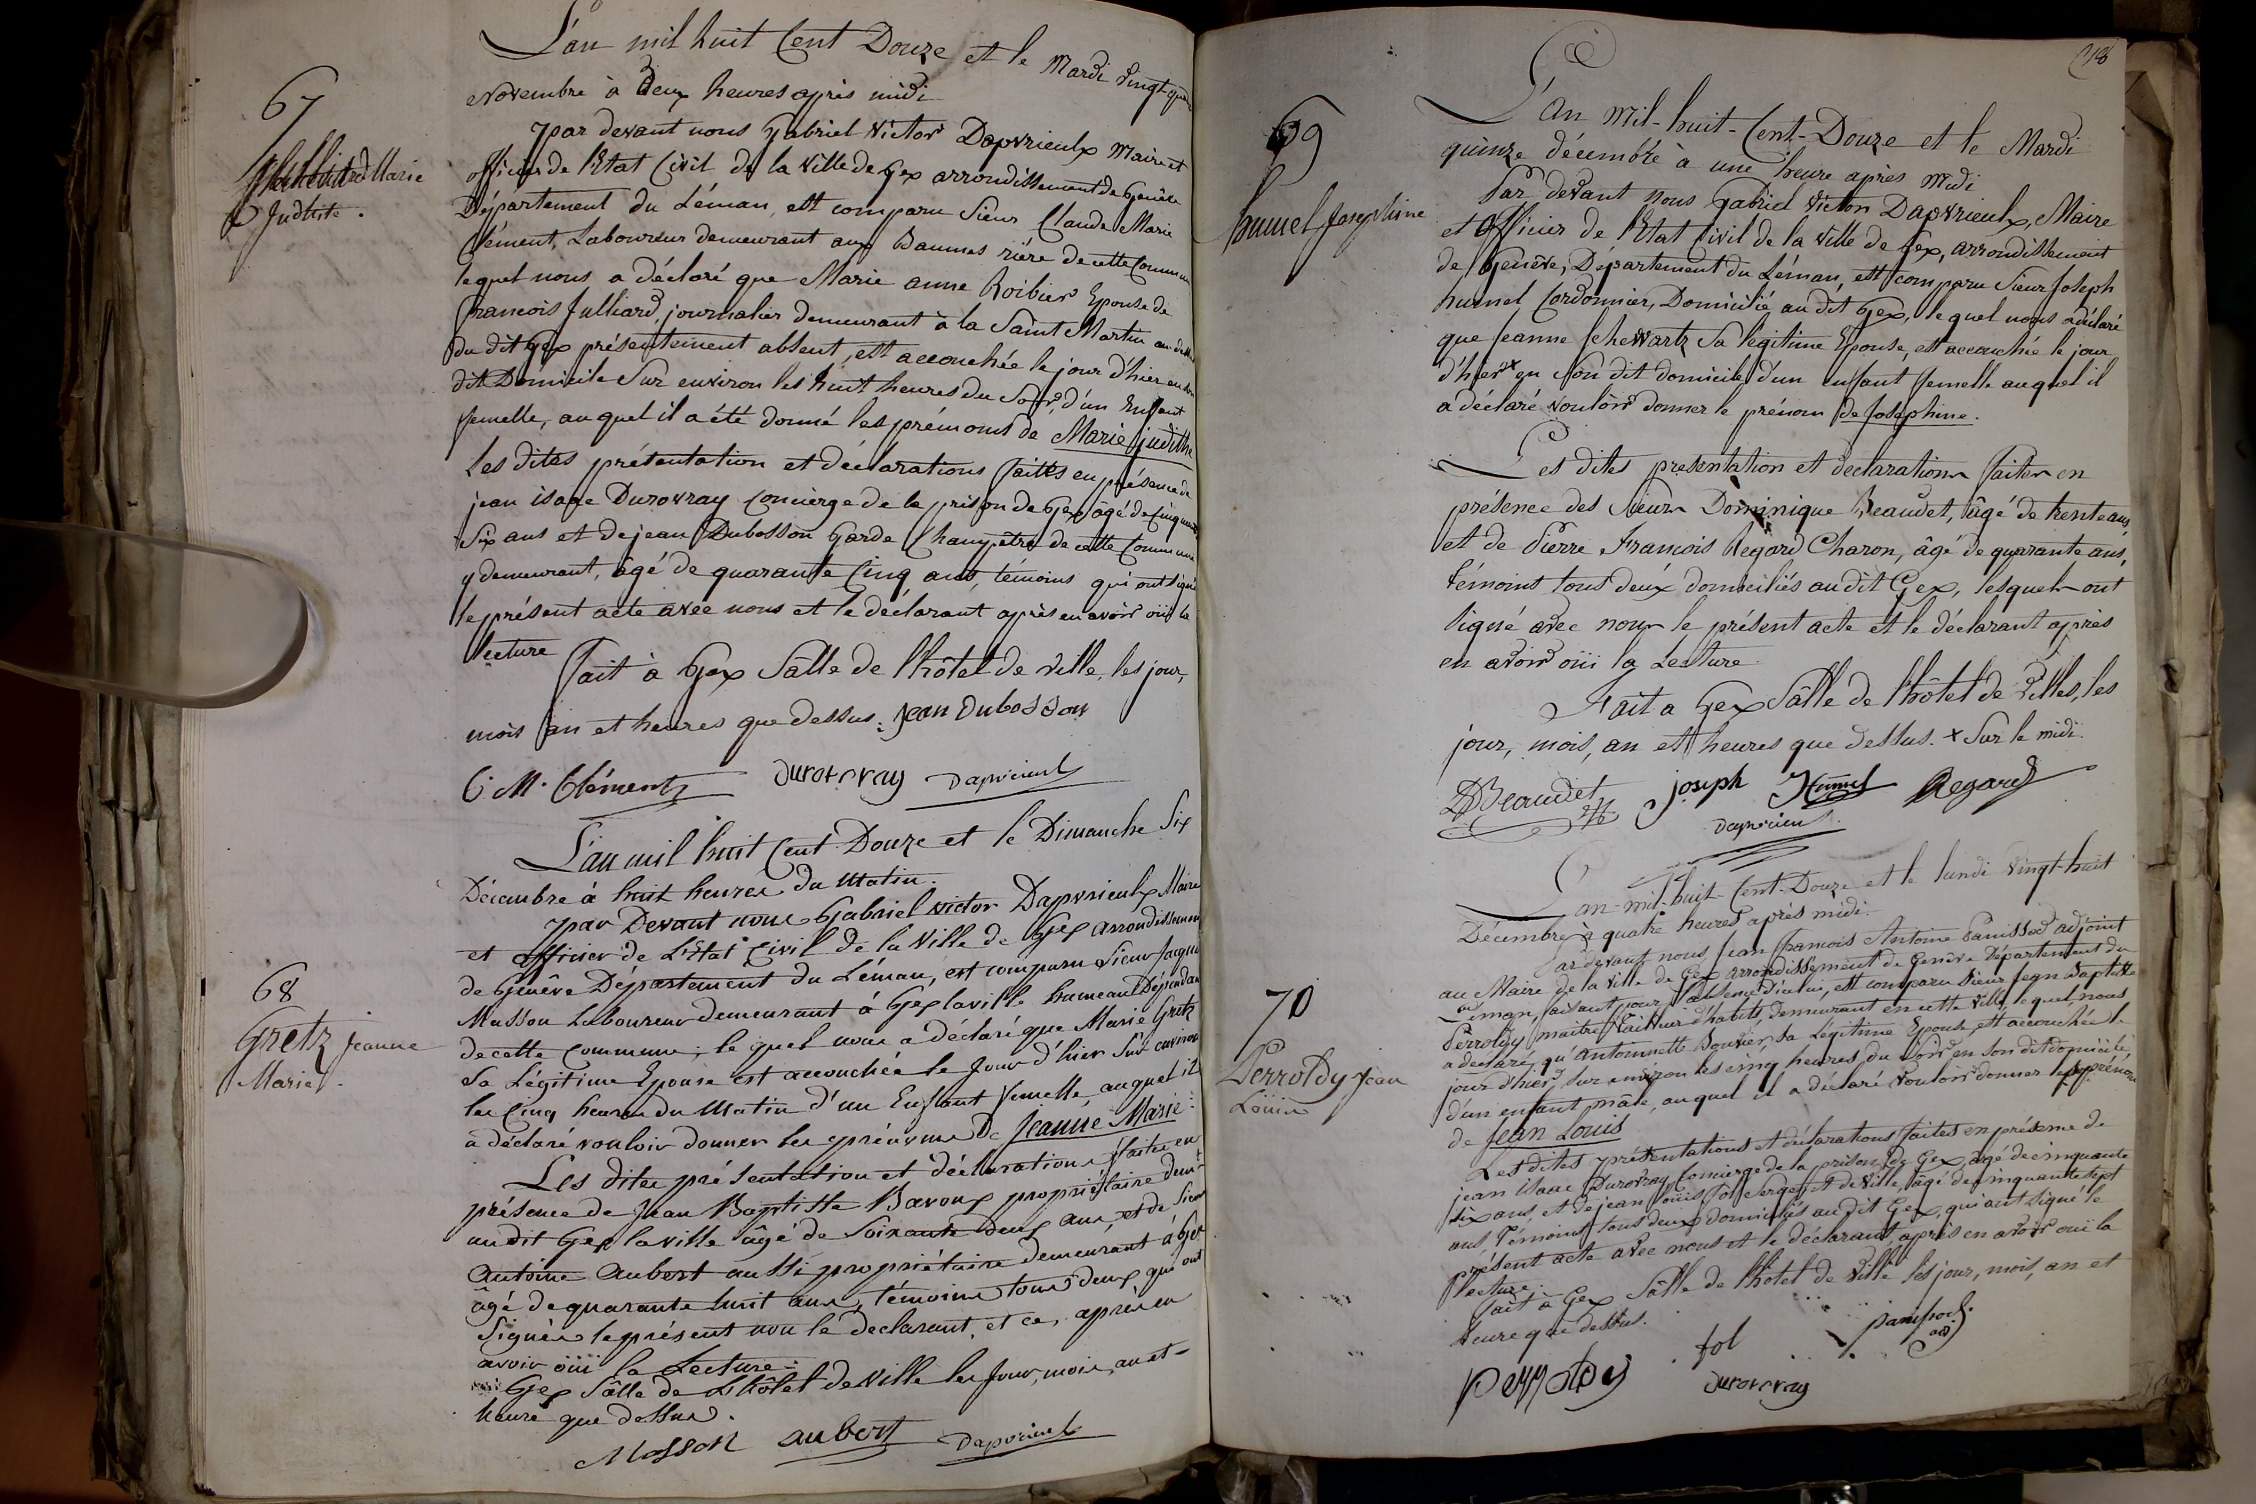 L'an mil huit Cent Douze et le Mardi vingt quatre
Novembre à deux heures après midi
par devant nous Gabriel Victor Dapvrieulx Maire et
officier de l'Etat Civil de la ville de Gex arrondissement de Genève
Département du Léman, est comparu Sieur Claude Marie
Clément, Laboureur demeurant aux Baumes rière de cette Commune
lequel nous a déclaré que Marie anne Roibier Epouse de
francois Julliard, journalier demeurant à la Saint Martin au dessus
du dit Gex présentement absent, est accouchée le jour d'hier en son
dit Domicile Sur environ les huit heures du Soir, d'un Enfant
femelle, auquel il a été donné les prénoms de Marie judithe
Les dites présentation et déclarations faites en présence de
jean isaac Durovray Concierge de la prison de Gex âgé de Cinquante
Six ans et de jean Dubosson Garde Champetre de cette Commune
y demeurant, âgé de quarante Cinq ans, témoins qui ont signé
le présent acte avec nous et le déclarant après en avoir oui la
lecture
fait à Gex Salle de l'hôtel de ville, les jour,
mois an et heures que dessus. jean Dubosson
C. M. Clément Durovray Dapvrieulx
67
Marie
Judithe.
L'an mil huit Cent Douze et le Dimanche Six
Décembre à huit heures du Matin.
par Devant nous Gabriel victor Dapvrieulx Maire
et officier de L'Etat Civil de la Ville de Gex arrondissement
de Genève Département du Léman, est comparu Sieur Jaque
Masson Laboureur demeurant à Gex la ville hameau Dépendant
de cette Commune, le quel nous a déclaré que Marie Gretz
Sa Légitime Epouse est accouchée le Jour d'hier Sur environ
les Cinq heures du Matin d'un Enfant femelle, auquel il
a déclaré vouloir donner les prénoms De Jeanne Marie.
Les dites présentation et déclarations faites en
présence de Jean Baptiste Bavoux propriétaire demt
au dit Gex la ville âgé de Soixante deux ans, et de Sieur
Antoine Aubert aussi propriétaire demeurant à Gex
âgé de quarante huit ans, témoins tous deux, qui ont
Signés le présent non le declarant, et ce, après en
avoir oüi la Lecture.
Gex Sâlle de L'hôtel de Ville les Jour, mois, an et
heure que dessus.
Masson Aubert Dapvrieulx
68
Gretz Jeanne
Marie.
218
L'An Mil-huit-Cent-Douze et le Mardi
quinze décembre à une heure après Midi
Par devant nous Gabriel Victor Dapvrieulx, Maire
et Officier de l'Etat Civil de la ville de Gex, arrondissement
de Genève, Département du Léman, est comparu Sieur Joseph
humel Cordonnier, Domicilié au dit Gex, lequel nous a déclaré
que Jeanne Schewartz Sa légitime Epouse, est accouchée le jour
d'hier + en son dit domicile d'un enfant femelle auquel il
a déclaré vouloir donner le prénom de Josephine.
Les dites presentation et declarations faites en
présence des Sieurs Dominique Beaudet, âgé de trente ans
et de Pierre François Regard Charon, âgé de quarante ans,
témoins tous deux domiciliés au dit Gex, lesquels ont
signé avec nous le présent acte et le déclarant après
en avoir oüi la Lecture
Fait a Gex Sâlle de l'hôtel de Villes, les
jour, mois, an et heures que dessus. + Sur le midi.
DBeaudet joseph Humel Regard
Dapvrieulx
69
humel Josephine
L'an-mil-huit-Cent-Douze et le lundi vingt-huit
Décembre à quatre heures après midi.
Pardevant nous Jean François Antoine Panissod adjoint
au Maire de la ville de Gex arrondissement de Genève Département du
Léman, faisant pour l'absence d'icelui, est comparu Sieur Jean Baptiste
Perroldy maitre Tailleur d'habits, demeurant en cette ville, lequel, nous
a déclaré, qu'antoinette Bouvier, sa Légitime Epouse est accouchée le
jour d'hier, sur environ les cinq heures, du Soir en son dit domicile
d'un enfant mâle, auquel il a déclaré vouloir donner les prénoms
de Jean Louis
Les dites présentations et déclarations faites en présence de
jean isaac Durovray Concierge de la prison de Gex, âgé de cinquante
six ans, et de jean louis fol Sergent de Ville, âgé de cinquante sept
ans, Témoins tous deux domiciliés au dit Gex, qui ont signé le
présent acte avec nous et le déclarant, après en avoir oui la
lecture.
fait à Gex Sâlle de l'hôtel de ville les jour, mois, an et
heure que dessus.
perroldy fol Durovray panissod
adj.
70
Perroldy Jean
Louis